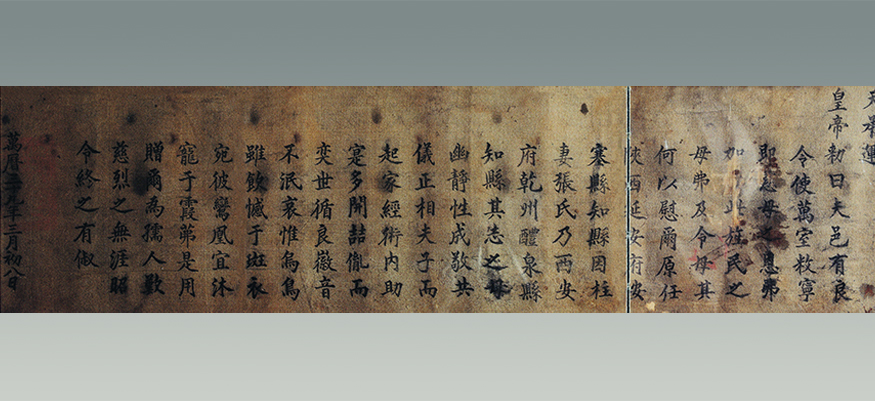 天承運
皇帝勅曰夫邑有良
令使萬室敉寧
即慈母之恩弗
如此旌民之
母弗及令母其
何以慰爾原任
陝西延安府安
塞縣知縣田柱
妻張氏乃西安
府乾州醴泉縣
知縣其志之母
幽靜性成敬共
儀正相夫子而
起家經術內助
寔多開喆胤而
奕世循良徽音
不泯哀惟烏鳥
雖飲憾于斑衣
宛彼鸞鳳宜沐
寵于霞第是用
贈爾為孺人歎
慈烈之無涯昭
令終之有俶
萬曆三十九年三月初八日